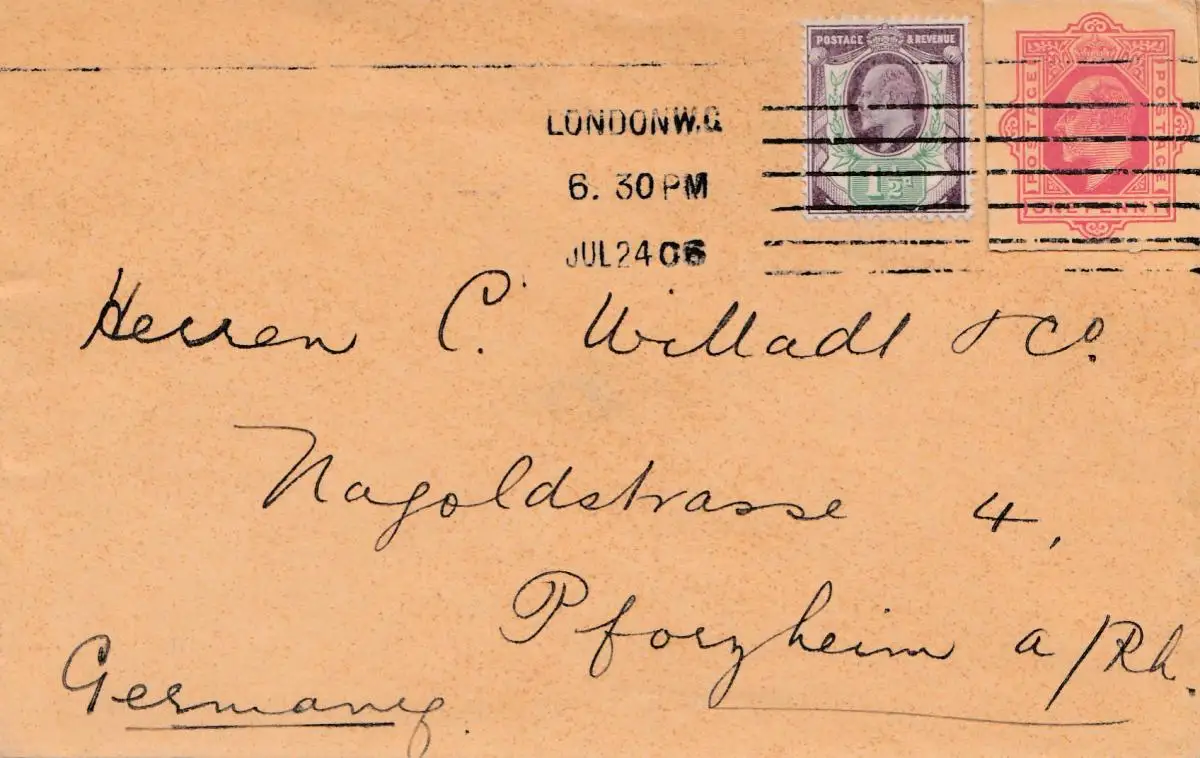 POSTAGE & REVENUE
1½D
POSTAGE POSTAGE
ONE PENNY
LONDON W.C
6. 30 PM
JUL 24 06
Herren C. Willadt & Co.
Nagoldstrasse 4,
Pforzheim a/Rh.
Germany